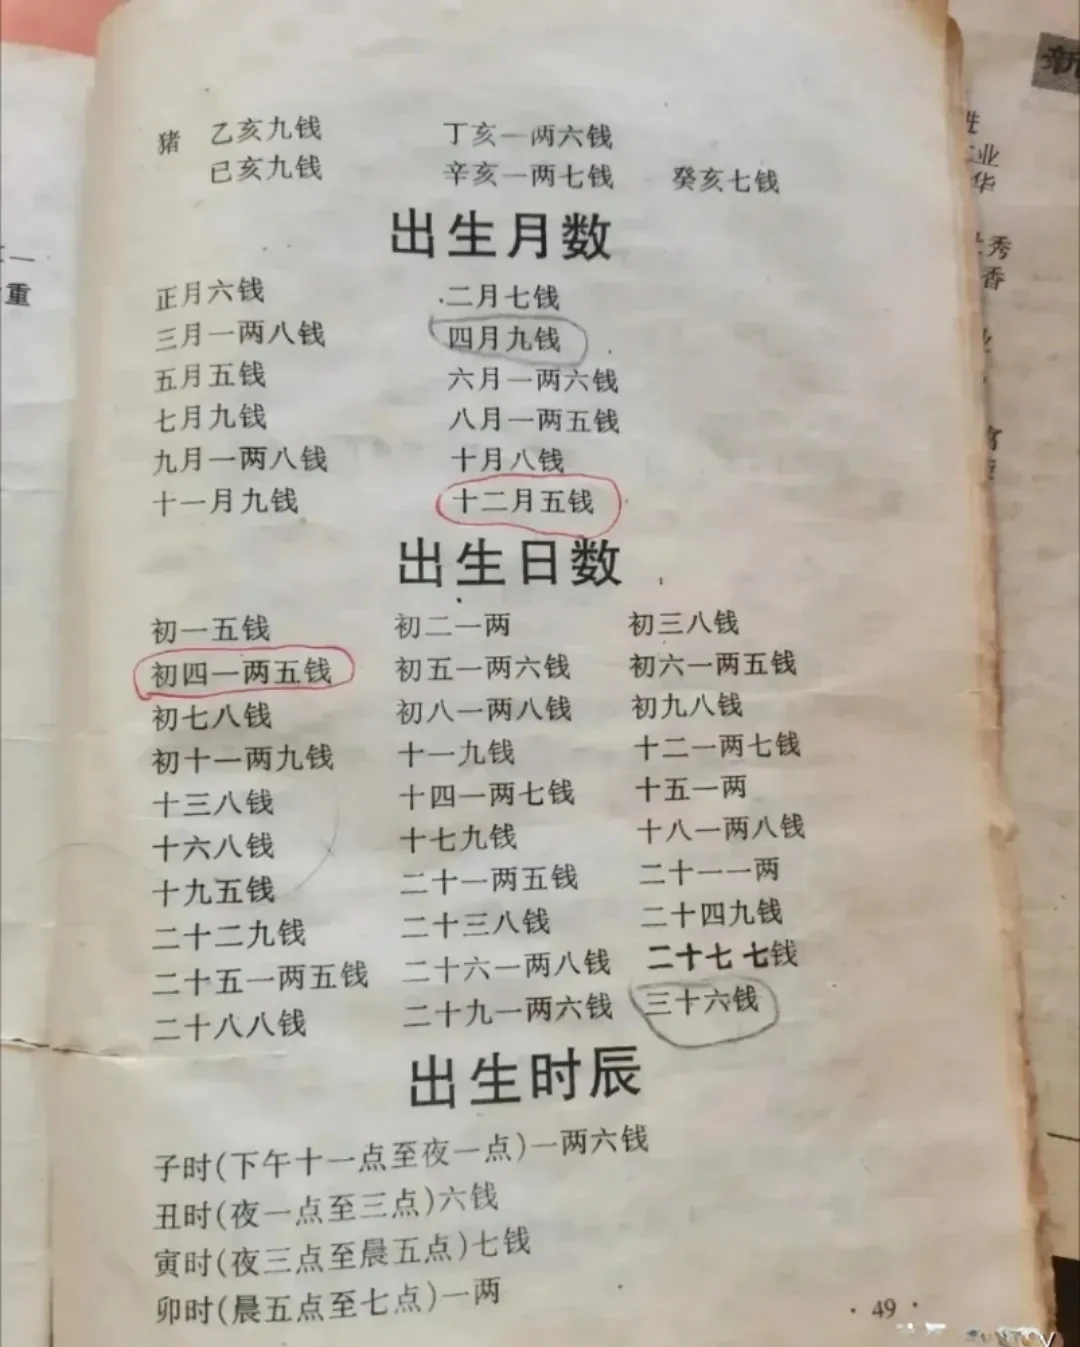 猪 乙亥九钱 丁亥一两六钱
已亥九钱 辛亥一两七钱 癸亥七钱
出生月数
正月六钱 二月七钱
三月一两八钱 四月九钱
五月五钱 六月一两六钱
七月九钱 八月一两五钱
九月一两八钱 十月八钱
十一月九钱 十二月五钱
出生日数
初一五钱 初二一两 初三八钱
初四一两五钱 初五一两六钱 初六一两五钱
初七八钱 初八一两八钱 初九八钱
初十一两九钱 十一九钱 十二一两七钱
十三八钱 十四一两七钱 十五一两
十六八钱 十七九钱 十八一两八钱
十九五钱 二十一两五钱 二十一一两
二十二九钱 二十三八钱 二十四九钱
二十五一两五钱 二十六一两八钱 二十七七钱
二十八八钱 二十九一两六钱 三十六钱
出生时辰
子时(下午十一点至夜一点)一两六钱
丑时(夜一点至三点)六钱
寅时(夜三点至晨五点)七钱
卯时(晨五点至七点)一两
·49·
重
新
业
华
秀
香